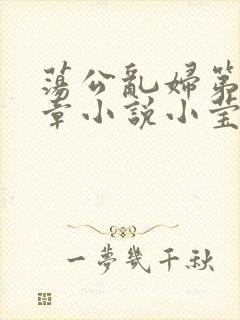 蕩公亂婦第
章小說小莹
一夢幾千秋